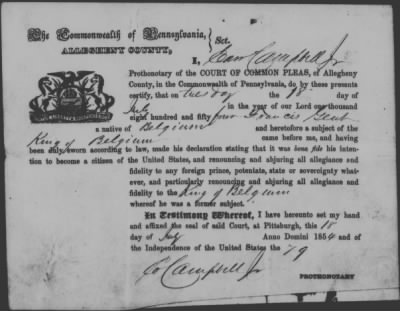 The Commonwealth of Pennsylvania,
ALLEGHENY COUNTY,
Sct.
I, Campbell Jr
Prothonotary of the COURT OF COMMON PLEAS, of Allegheny
County, in the Commonwealth of Pennsylvania, do by these presents
certify, that on Tuesday the 18 day of
July in the year of our Lord one thousand
eight hundred and fifty four Francis
a native of Belgium and heretofore a subject of the
King of Belgium came before me, and having
been duly sworn according to law, made his declaration stating that it was bona fide his inten-
tion to become a citizen of the United States, and renouncing and abjuring all allegiance and
fidelity to any foreign prince, potentate, state or sovereignty what-
ever, and particularly renouncing and abjuring all allegiance and
fidelity to the King of Belgium
whereof he was a former subject.
In Testimony Whereof, I have hereunto set my hand
and affixed the seal of said Court, at Pittsburgh, this 18
day of July Anno Domini 1854 and of
the Independence of the United States the 79
Campbell Jr
PROTHONOTARY